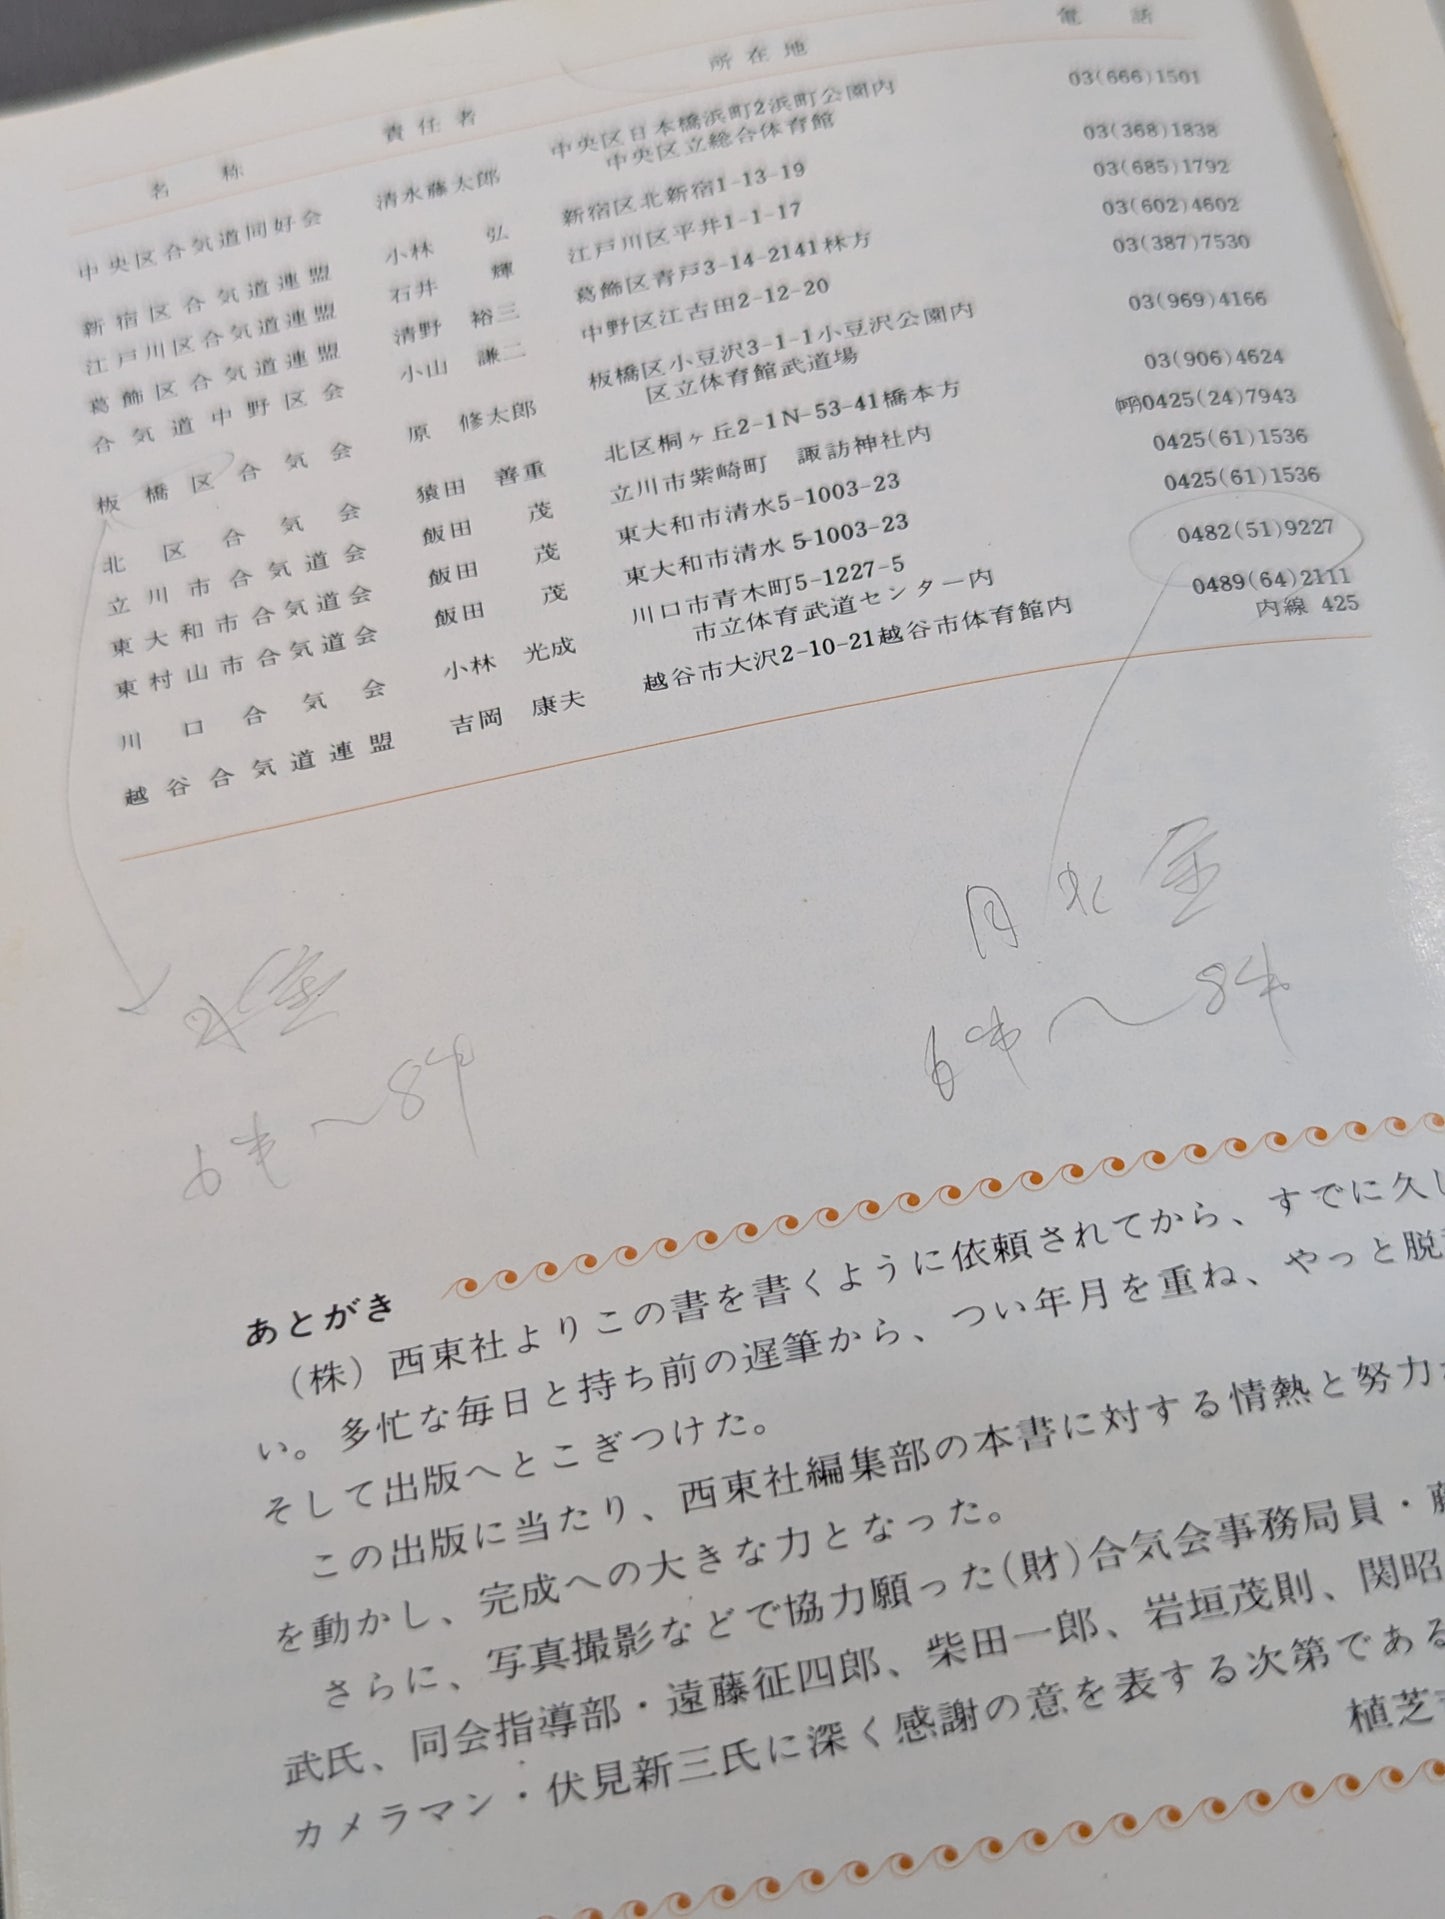 名称 責任者 所在地 電話
中央区合気道同好会 清水藤太郎 中央区日本橋浜町2浜町公園内 03(666)1501
中央区立総合体育館
新宿区合気道連盟 小林 弘 新宿区北新宿1-13-19 03(368)1838
江戸川区合気道連盟 石井 輝 江戸川区平井1-1-17 03(685)1792
葛飾区合気道連盟 清野 裕三 葛飾区青戸3-14-2141林方 03(602)4602
合気道中野区会 小山 謙二 中野区江古田2-12-20 03(387)7530
板橋区合気会 原 修太郎 板橋区小豆沢3-1-1小豆沢公園内 03(969)4166
区立体育館武道場
北区合気会 猿田 善重 北区桐ヶ丘2-1N-53-41橋本方 03(906)4624
立川市合気道会 飯田 茂 立川市紫崎町 諏訪神社内 ㈺0425(24)7943
東大和市合気道会 飯田 茂 東大和市清水5-1003-23 0425(61)1536
東村山市合気道会 飯田 茂 東大和市清水5-1003-23 0425(61)1536
川口合気会 小林 光成 川口市青木町5-1227-5 0482(51)9227
市立体育武道センター内
越谷合気道連盟 吉岡 康夫 越谷市大沢2-10-21越谷市体育館内 0489(64)2111
内線 425
月水金
6时〜8时
水金
6时〜8时
あとがき
(株)西東社よりこの書を書くように依頼されてから、すでに久し
い。多忙な毎日と持ち前の遅筆から、つい年月を重ね、やっと脱
そして出版へとこぎつけた。
この出版に当たり、西東社編集部の本書に対する情熱と努力
を動かし、完成への大きな力となった。
さらに、写真撮影などで協力願った(財)合気会事務局員・藤
武氏、同会指導部・遠藤征四郎、柴田一郎、岩垣茂則、関昭
カメラマン・伏見新三氏に深く感謝の意を表する次第である
植芝